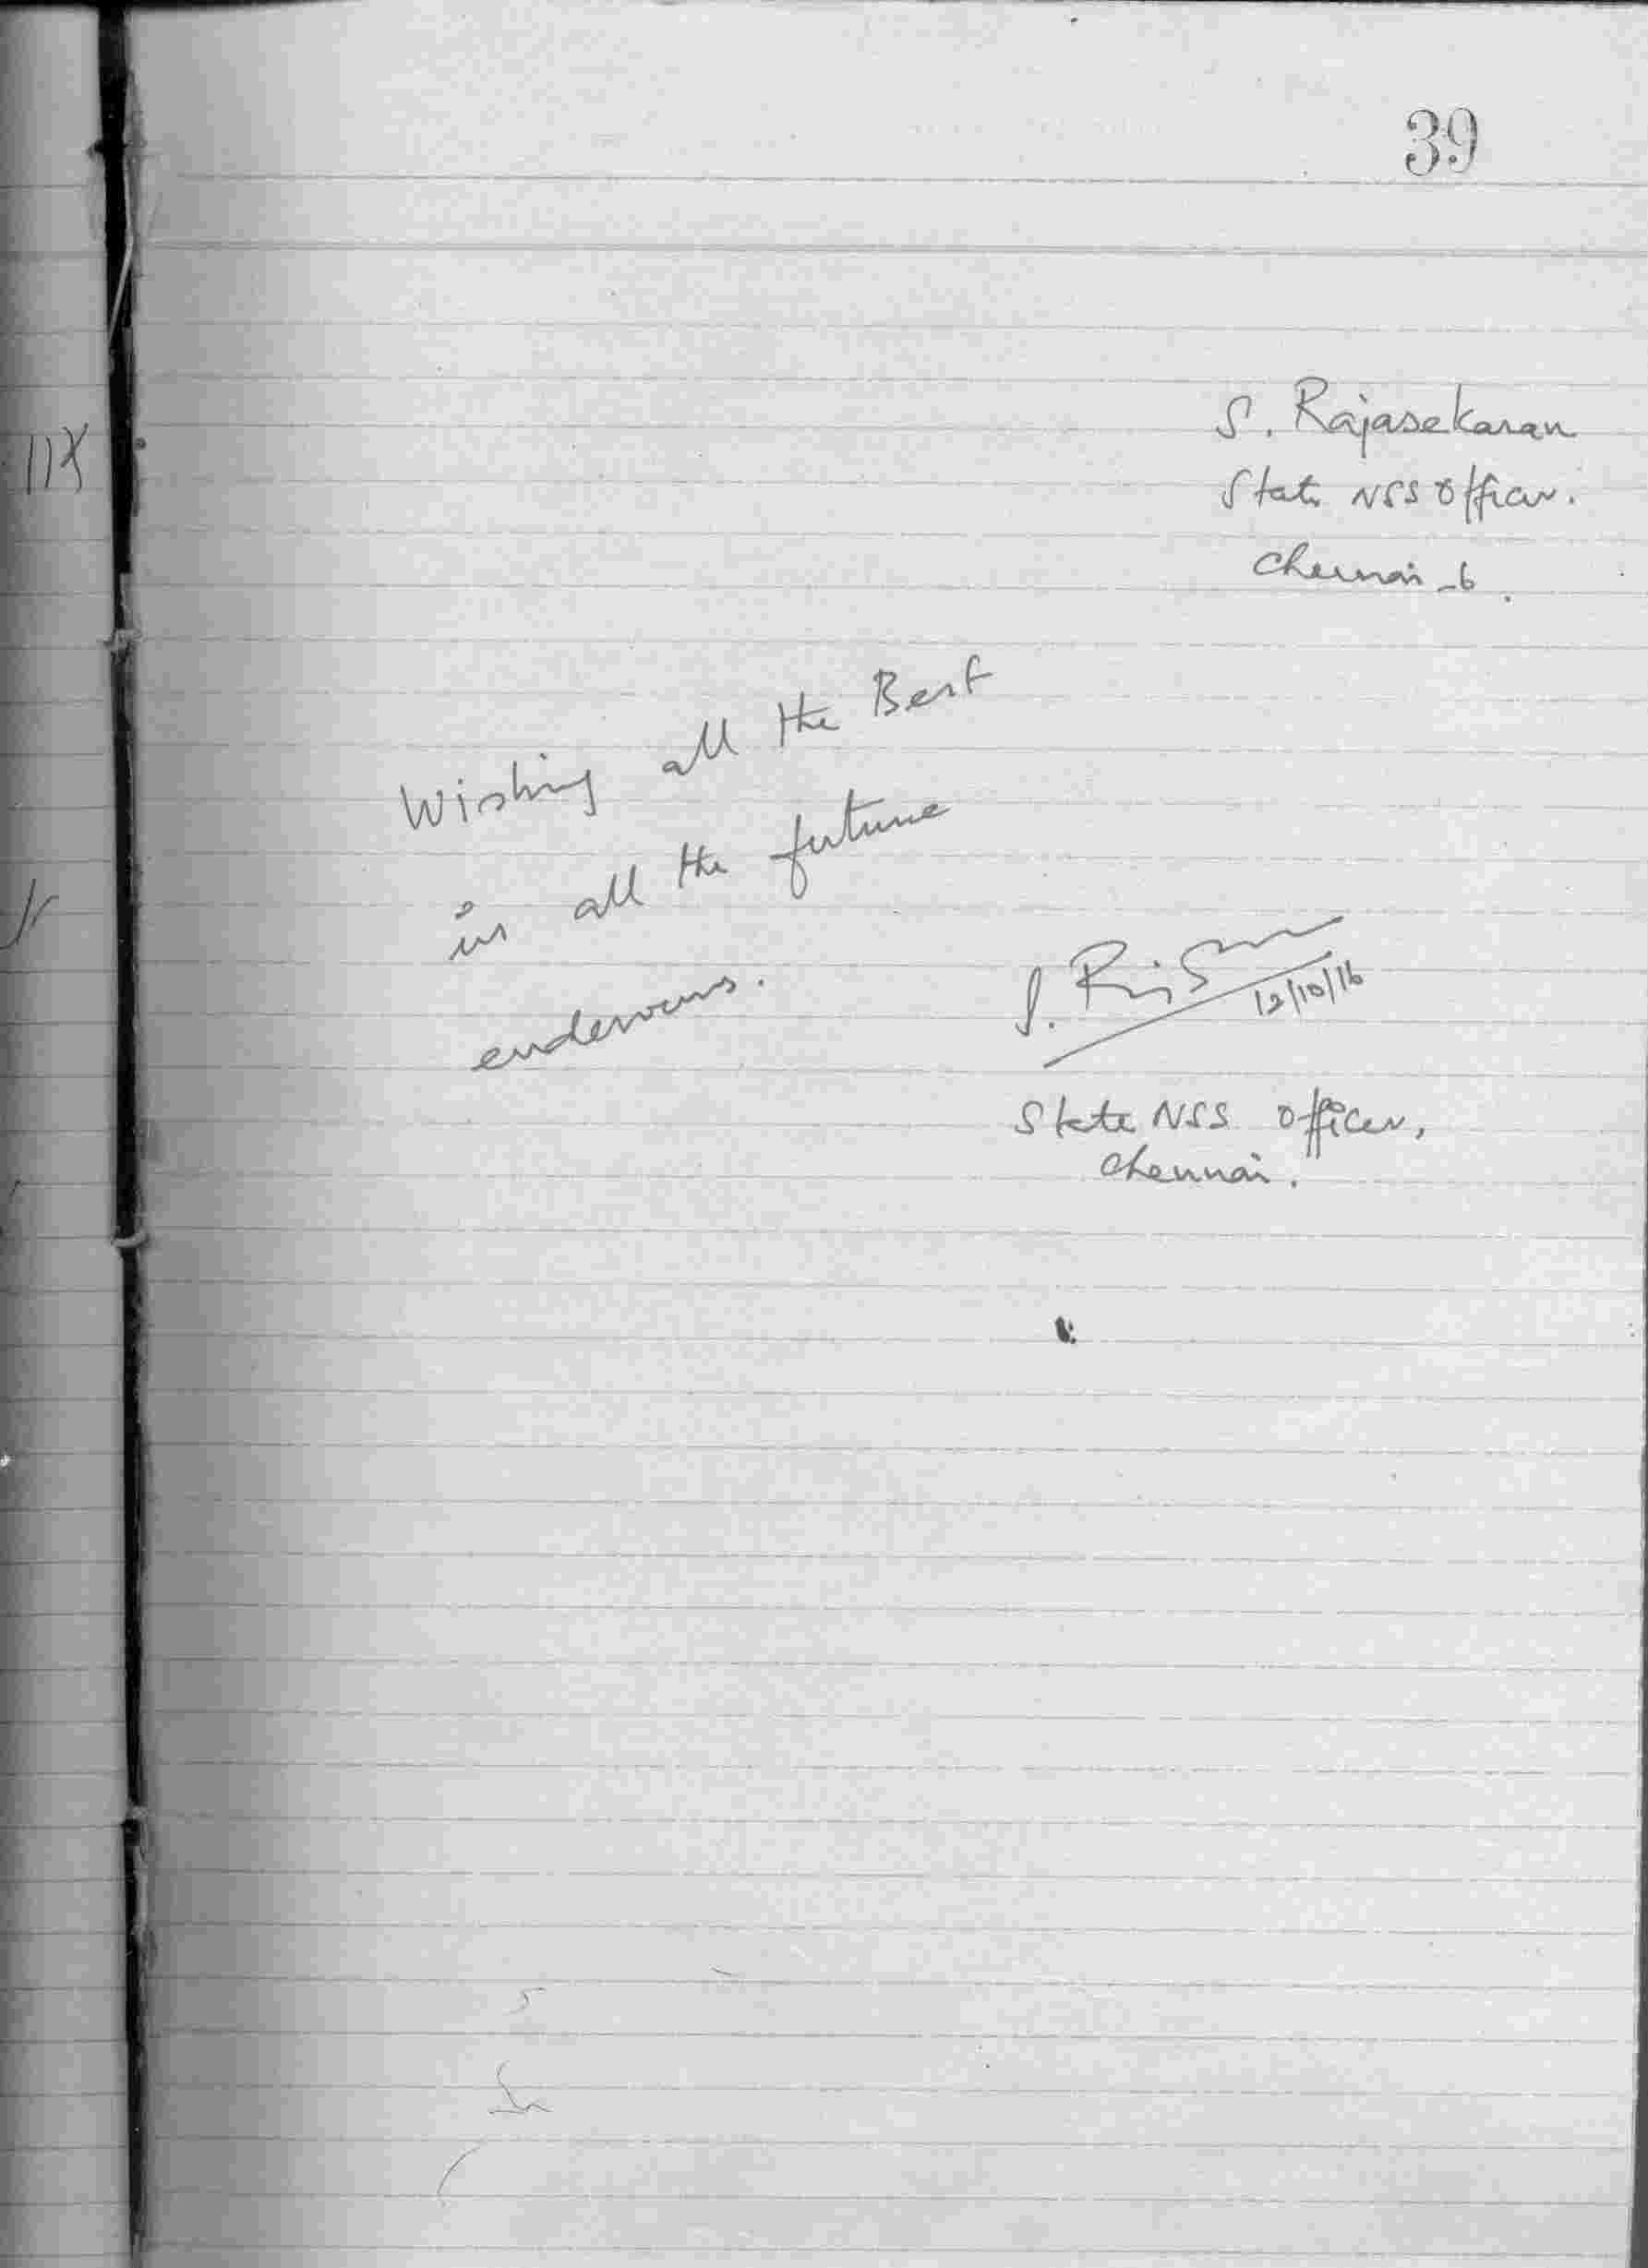 39
S. Rajasekaran
State NSS Officer.
Chennai-6.
Wishing all the Best
in all the future
endevours.
S. Raj
12/10/16
State NSS Officer,
Chennai.